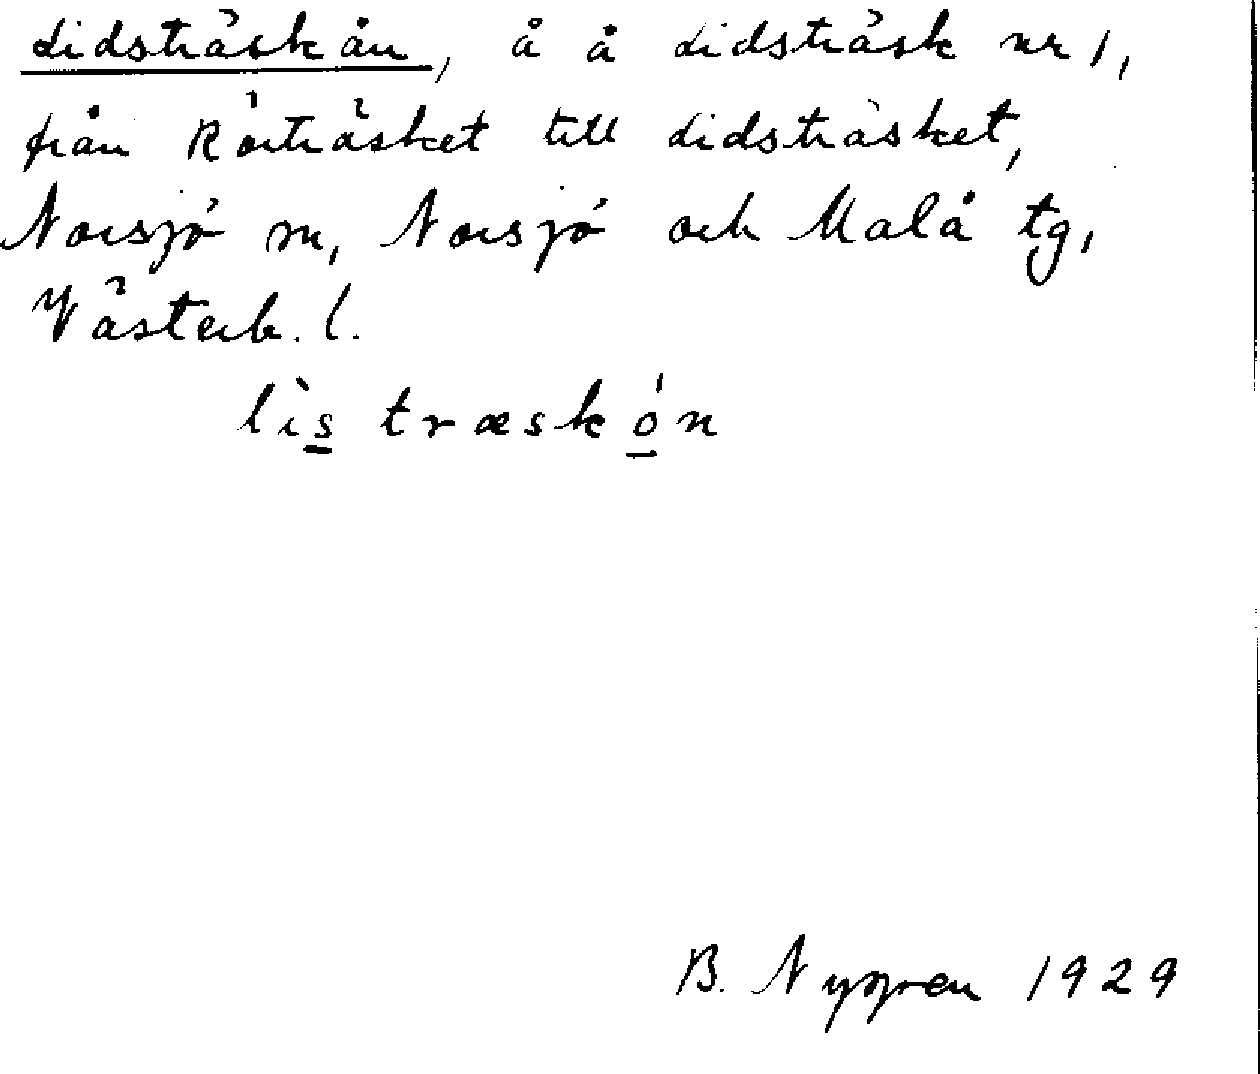 Lidsträskån, å å Lidsträsk nr 1,
från Rörträsket till Lidsträsket,
Norsjö sn, Norsjö och Malå tg,
Västerb. l.
lìs træskón
B. Nygren 1929